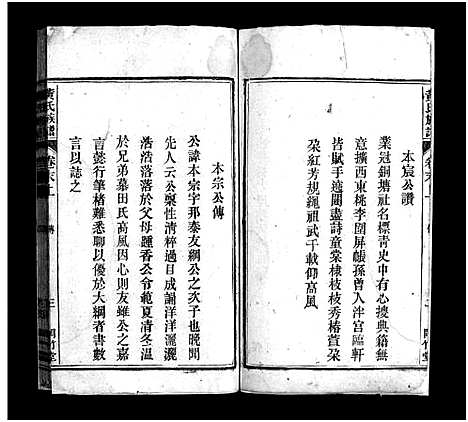 本宸公讚
業冠銅塘社名標青史中有心搜典籍無
意擴西東桃李圍屏帳孫曾入泮宮臨軒
皆賦手遶闥盡詩童棠棣枝枝秀椿萱朶
朶紅芳規繩祖武千載仰高風
黃氏族譜
卷末上
傳
本宗公傳
公諱本宗字邦泰友綱公之次子也晚聞
先人云公稟性清粹過目成誦洋洋灑灑
浩浩落落於父母踵香公令範夏清冬溫
於兄弟慕田氏高風因心則友雖公之嘉
言懿行筆楮難悉聊以優於大綱者書數
言以誌之